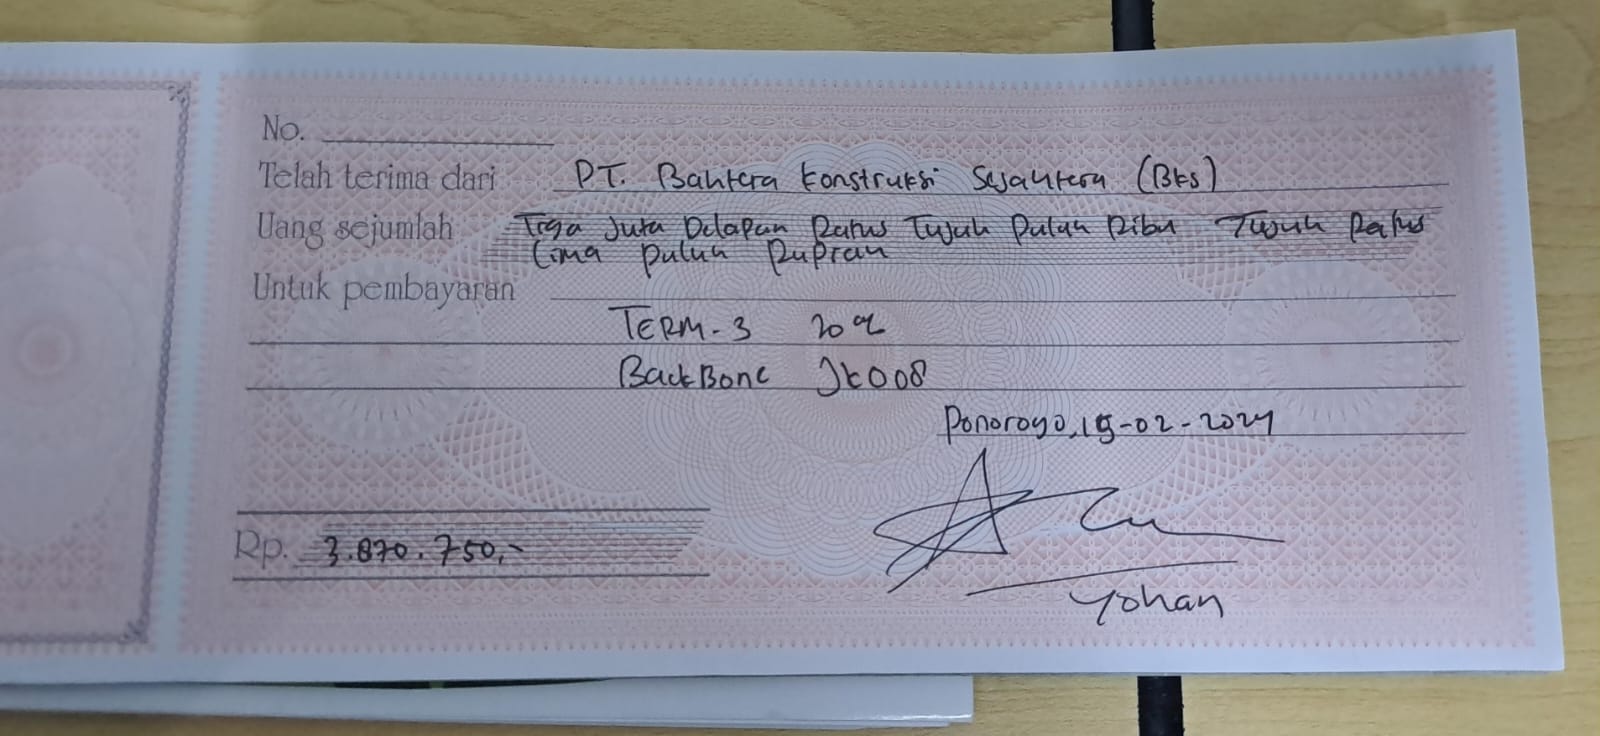 No.
Telah terima dari PT. Bahtera Konstruksi Sejahtera (BKS)
Uang sejumlah Tiga Juta Delapan Ratus Tujuh Puluh Ribu Tujuh Ratus
Lima puluh Rupiah
Untuk pembayaran
TERM-3 20%
BackBone JK008
Ponorogo, 15-02-2024
Rp. 3.870.750,-
Yohan